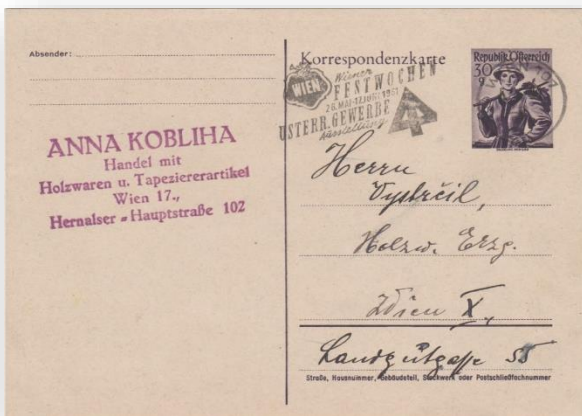 Absender:
ANNA KOBLIHA
Handel mit
Holzwaren u. Tapeziererartikel
Wien 17.,
Hernalser-Hauptstraße 102
Korrespondenzkarte
WIEN
Wiener
FESTWOCHEN
26. MAI-17. JUNI 1951
ÖSTERR. GEWERBE
Ausstellung
Republik Österreich
30
g
Herrn
Vystrčil,
Holzw. Erzg.
Wien X.,
Landgutgasse 55
Straße, Hausnummer, Gebäudeteil, Stockwerk oder Postschließfachnummer